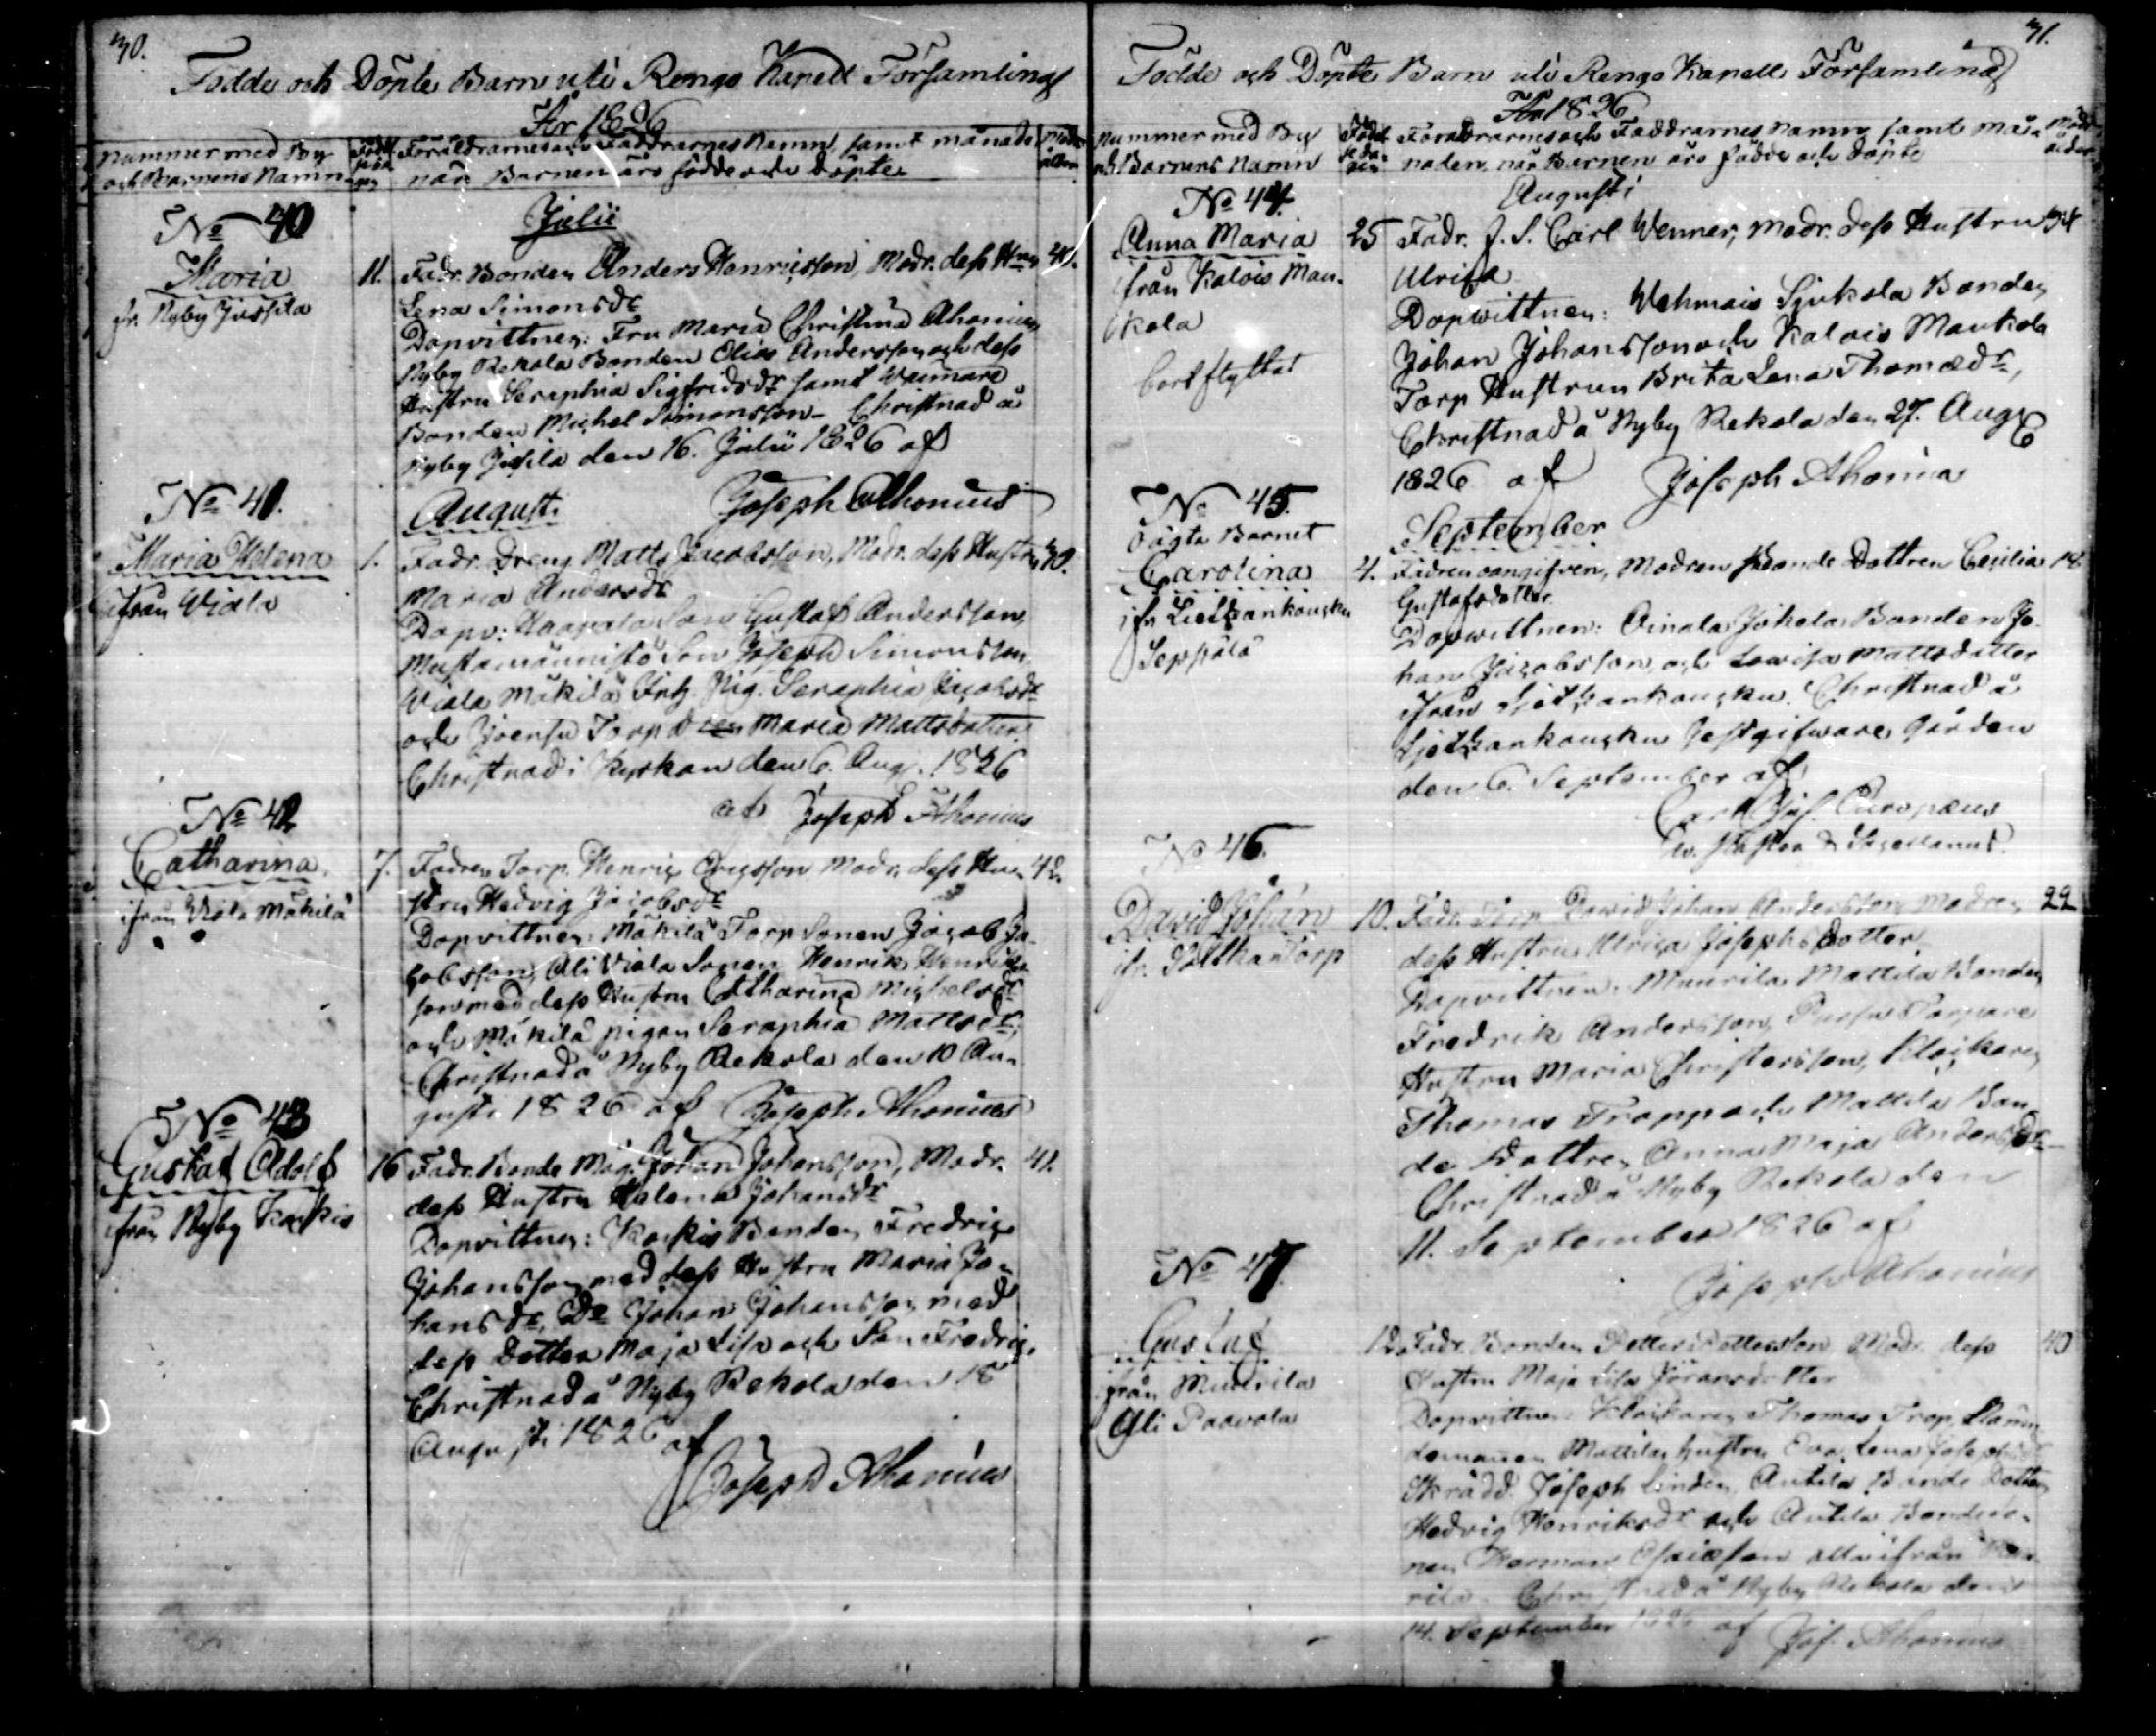 30.
Födde och Döpte Barn uti Rengo Kapell Församling
År 1826
Nummer med By och Barnens Namn
Föräldrarnes och Faddrarnes Namn, samt månaden
när Barnen äro födde och döpte
Julii
No 40
Maria
fr. Nyby Jussila
11. Fadr. Bonden Anders Henricsson, Modr. dess Hru 40.
Lena Simonsdr
Dopvittnen: Fru Maria Christina Ahonius,
Nyby Rekola Bonden Elias Andersson och dess
Hustru Seraphia Sigfridsdr samt
Bonden Michel Simonsson. Christnad å
Nyby Jussila den 16. Julii 1826 af
Joseph Ahonius
Augusti
No 41.
Maria Helena
ifrån Wiala
1. Fadr. Dreng Matts Jacobsson, Modr. dess Hustru 30.
Maria Andersdr
Dopv: Haapala Son Gustaf Andersson,
Mustamännistö Son Joseph Simonsson
Wiala Mäkilä Pig. Seraphia Jacobsdr
och Torp Maria Mattsdotter.
Christnad i Kyrkan den 6. Aug. 1826
af Joseph Ahonius
No 42
Catharina
ifrån Viala Mäkilä
7. Fadren Torp. Henric Ericsson Modr. dess Hu- 42.
stru Hedvig Jacobsdr
Dopvittnen: Mäkilä Torp Sonen Jacob Ja-
cobsson, Ali Viala Sonen Henrik Henriks-
son med dess Hustru Catharina Michelsdr
och Mäkilä pigan Seraphia Mattsdr,
Christnad å Nyby Rekola den 10 Au-
gusti 1826 af Joseph Ahonius
No 43
Gustaf Adolf
ifrån Nyby Kackis
16 Fadr. Bonde Måg. Johan Johansson, Modr. 41.
dess Hustru Helena Johansdr
Dopvittnen: Kackis Bonden Fredric
Johansson med dess Hustru Maria Jo-
hansdr, Do Johan Johansson med
dess Dotter Maja Lisa och Son Fredric.
Christnad å Nyby Rekola den 18
Augusti 1826 af
Joseph Ahonius
31.
Födde och Döpte Barn uti Rengo Kapell Församling
År 1826
Nummer med By och Barnens Namn
Föräldrarnes och Faddrarnes Namn samt må-
naden, när Barnen äro födde och döpte
Augusti
No 44.
Anna Maria
ifrån Kalois Mau-
kola
bortflyttat
25 Fadr. J. S. Carl Wenner, Modr. dess Hustru 34
Ulrica
Dopwittnen: Wehmais Sjukola Bonden
Johan Johansson och Kalois Maukola
Torp Hustrun Brita Lena Thomædr,
Christnad å Nyby Rekola den 27. Aug
1826 af Joseph Ahonius
September
No 45.
Oägta Barnet
Carolina
Seppälä
4. Fadren oangifven, Modren Bonde Dottren Cecilia 18
Gustafsdotter
Dopwittnen: Oinala Jokela Bonden Jo-
han Jacobsson, och Lowisa Mattsdotter
ifrån. Christnad å
Gestgifware Gården
den 6. September af
Carl Europæus
No 46.
David Johan
Torp
10. Fadr. Torp. David Johan Andersson Modren 22
dess Hustru Ulrica Josephsdotter
Dopvittnen: Muurila Mattila Bonden
Fredrik Andersson, Torpare
Hustru Maria Christersson, Klockaren
Thomas Tropp och Mattila Bon-
de Dottren Anna Maja Andersdr
Christnad å Nyby Rekola den
11. September 1826 af
Joseph Ahonius
No 47.
Gustaf
ifrån Muurila
Yli Paavola
12. Fadr. Bonden Petter Pettersson Modr. dess 40
Hustru Maja Lisa Göransdotter
Dopvittnen: Klockaren Thomas Trop,
Mattila Hustru Eva Lena Josephsdr
Skrädd. Joseph Linden, Anttila Bonde Dotter
Hedvig Henriksdr och Anttila
Herman alla ifrån Muu-
rila. Christnad å Nyby Rekola den
14. September 1826 af Jos. Ahonius